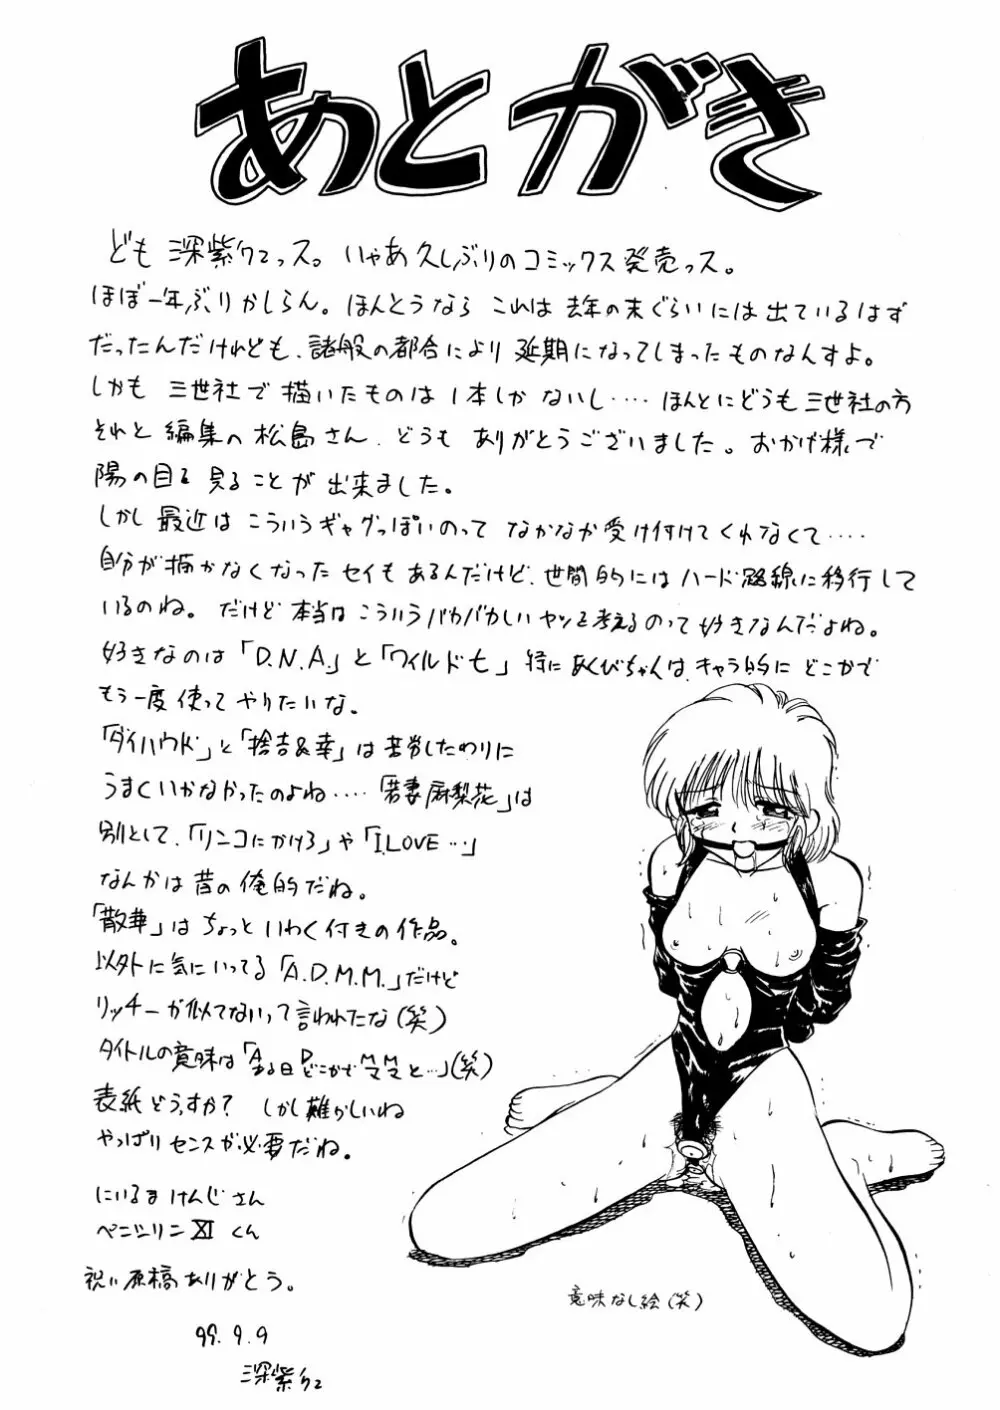 あとがき
ども 深紫クマっス。いやあ久しぶりのコミックス発売っス。
ほぼ一年ぶりかしらん。ほんとうなら これは 去年の末ぐらいには出ているはず
だったんだけれども、諸般の都合により 延期になってしまったものなんすよ。
しかも 三世社で描いたものは 1本しかないし‥‥ ほんとにどうも三世社の方
それと 編集の松島さん、どうも ありがとうございました。おかげ様で
陽の目を 見ることが 出来ました。
しかし 最近は こういうギャグっぽいのって なかなか受け付けてくれなくて‥‥
自分が描かなくなったセイもあるんだけど、世間的にはハード路線に移行して
いるのね。だけど 本当は こういうバカバカしいヤツを考えるのって好きなんだよね。
好きなのは「D.N.A.」と「ワイルドセ」特にあくびちゃんは、キャラ的に どこかで
もう一度 使って やりたいな。
「ダイハウド」と「捨吉&幸」は 苦労したわりに
うまくいかなかったのよね‥‥「若妻麻梨花」は
別として、「リンコにかけろ」や「I.LOVE…」
なんかは 昔の俺的だね。
「散華」は ちょっと いわく付きの作品。
以外に気にいってる「A.D.M.M.」だけど
リッチーが似てないって言われたな(笑)
タイトルの意味は「ある日どこかでママと…」(笑)
A D M M
表紙どうっすか? しかし難かしいね
やっぱり センスが必要だね。
にいるまけんじさん
ペニシリンⅪくん
祝い原稿ありがとう。
99.9.9
深紫クマ
意味なし絵(笑)